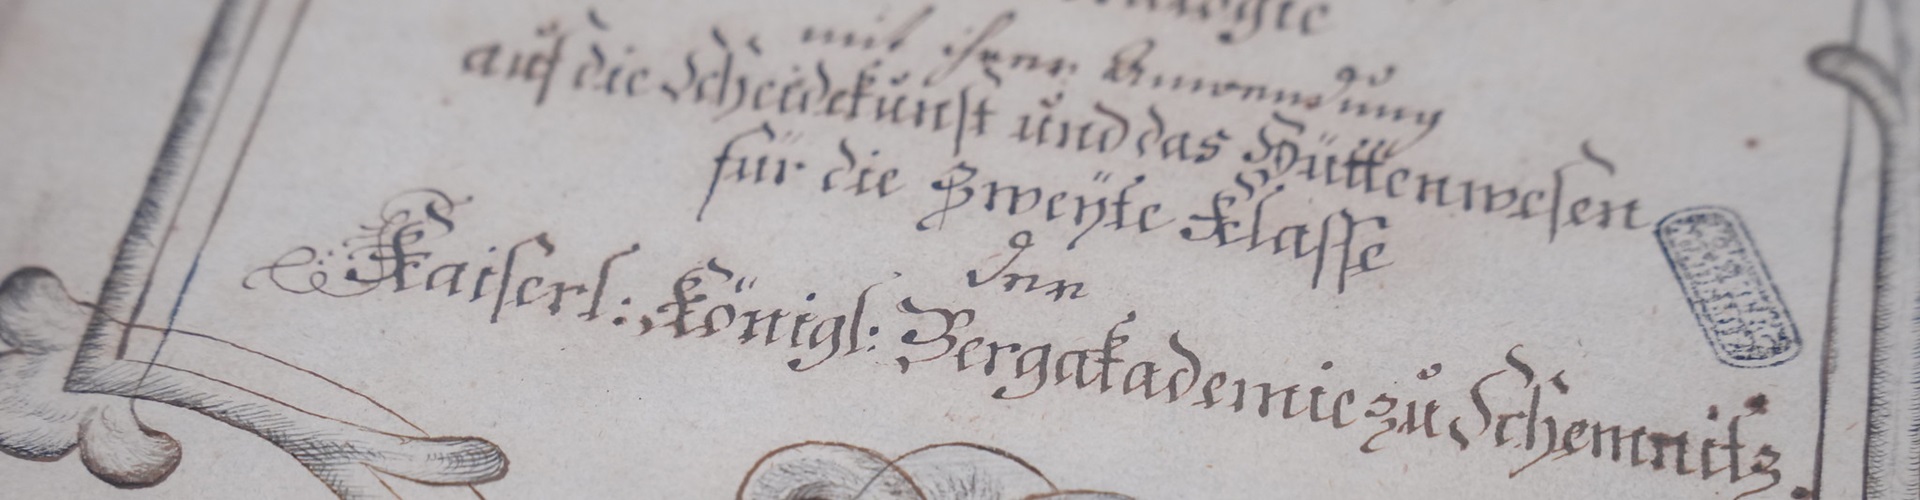 mit ihrer Anwendung
auf die Scheidekunst und das Hüttenwesen
für die Zweyte Klasse
der
Kaiserl: Königl: Bergakademie zu Schemnitz